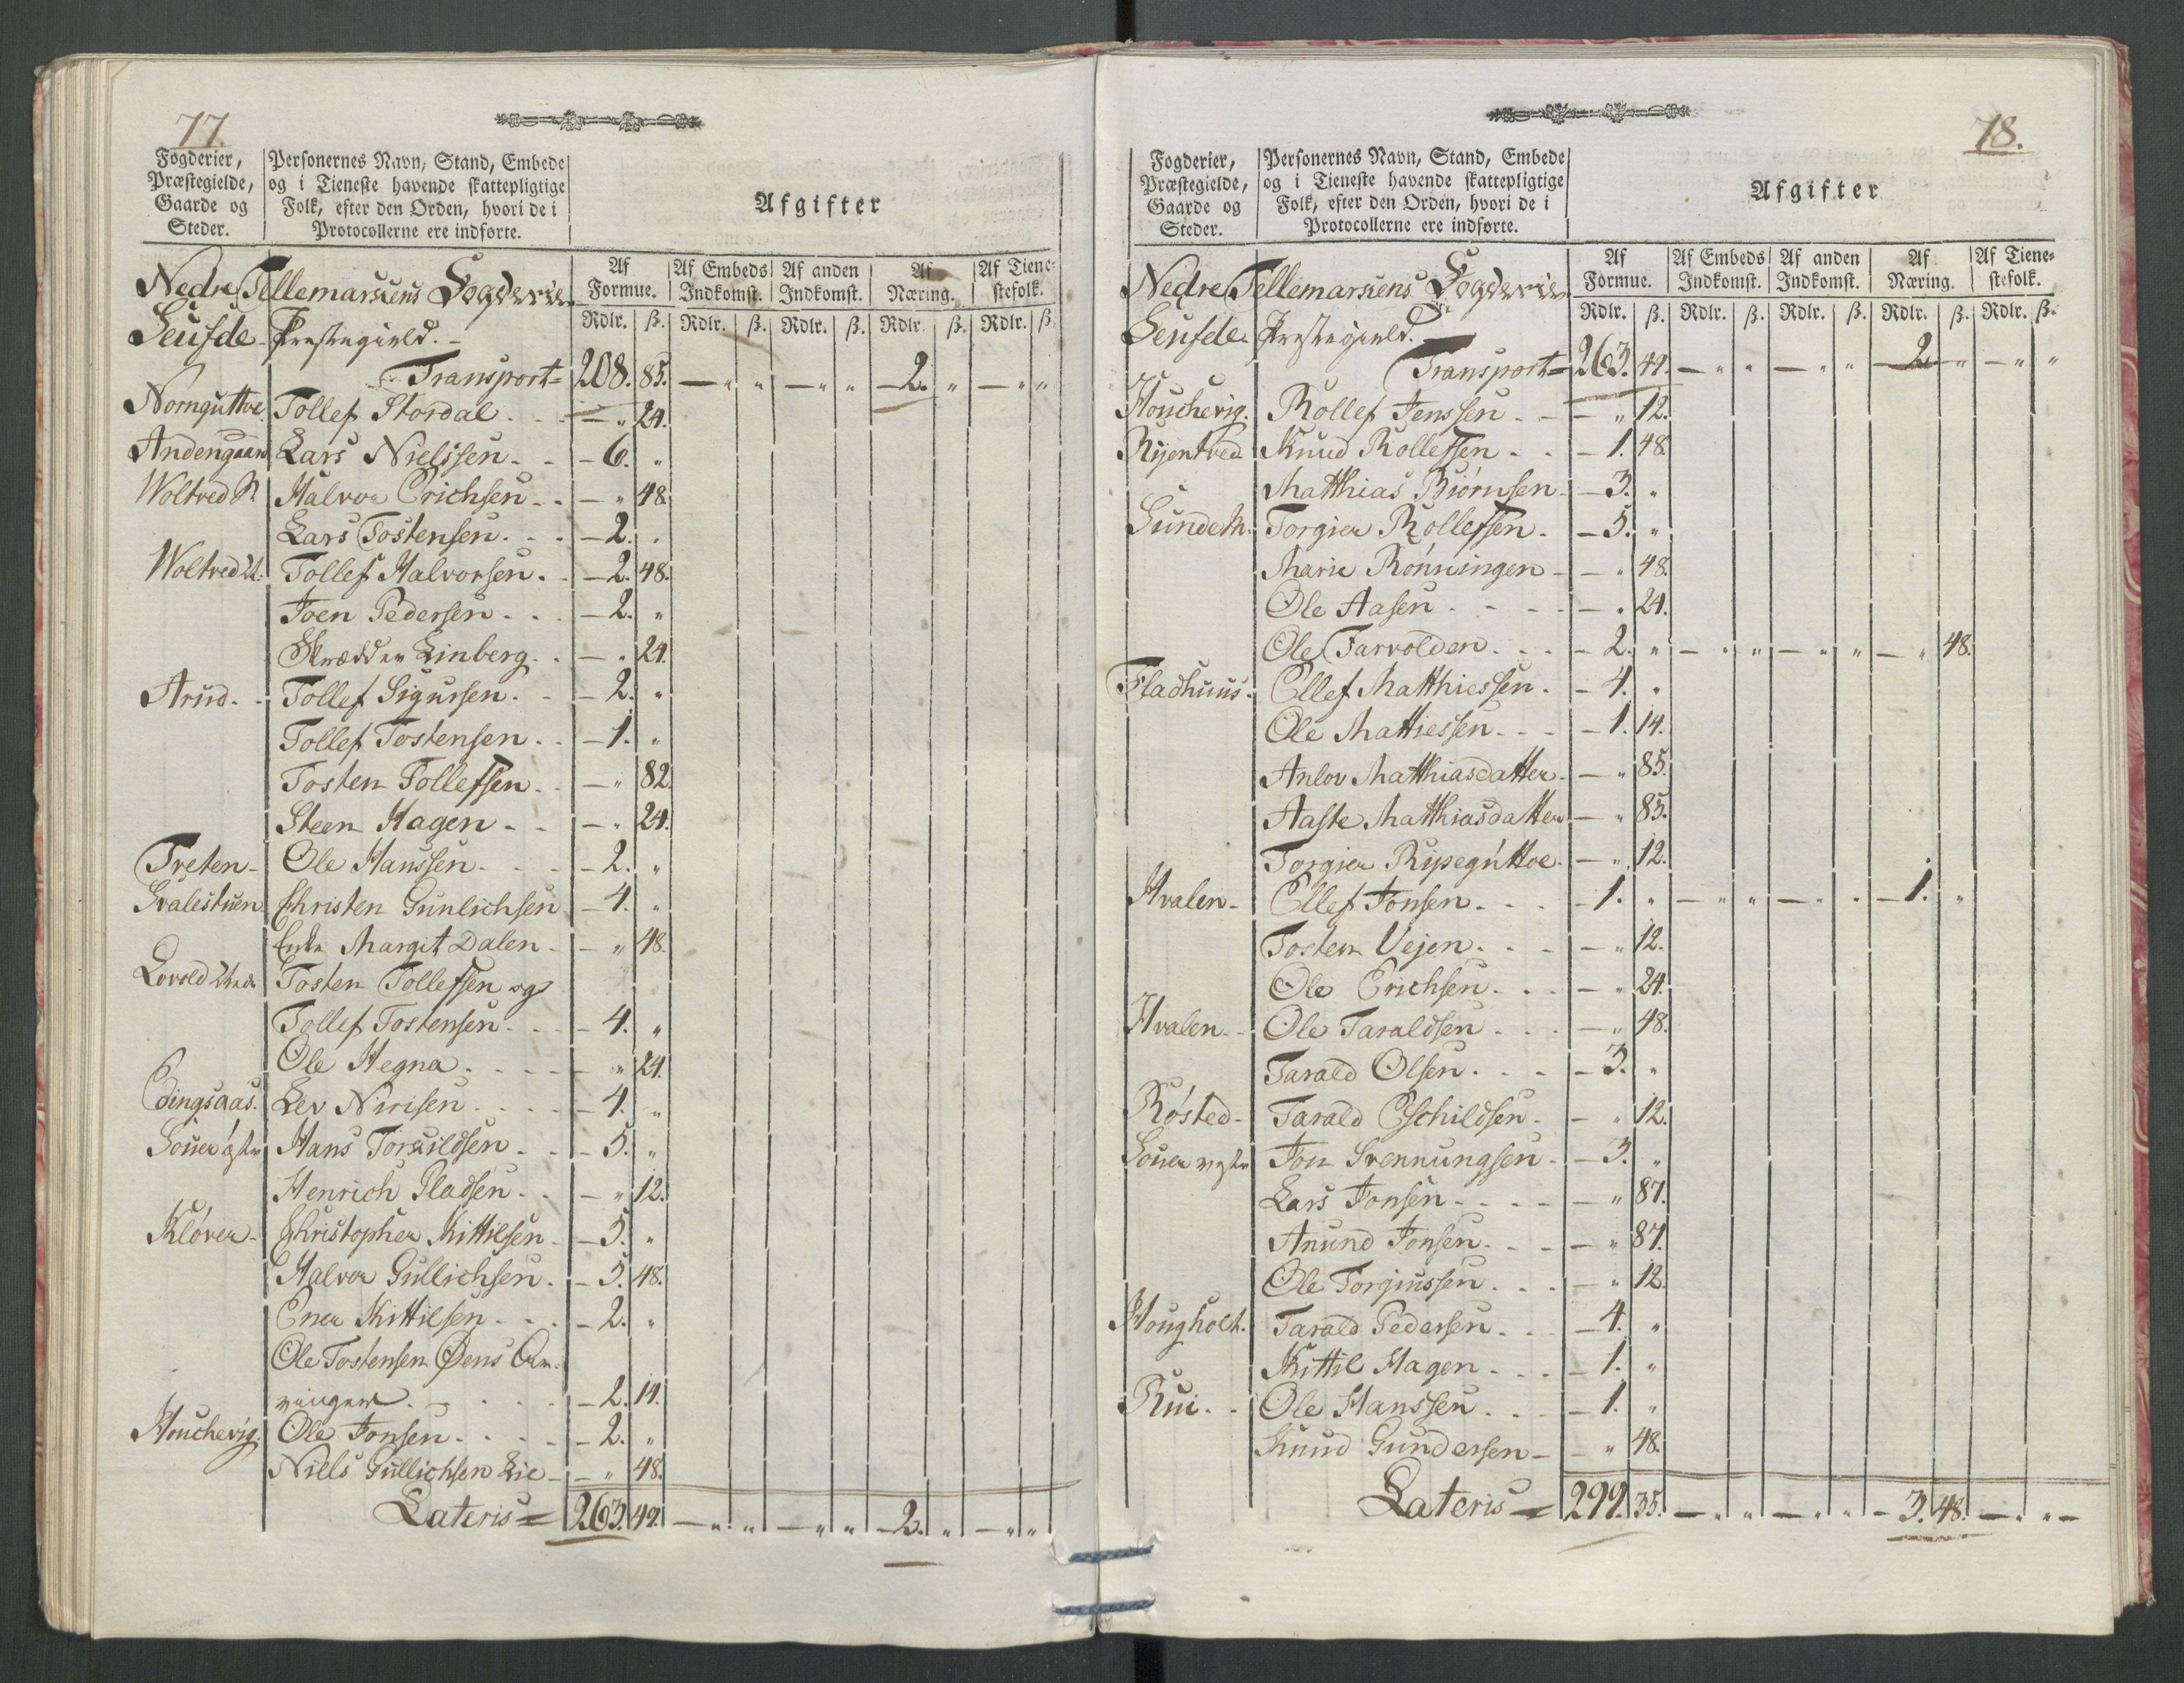 77.
Fogderier, Præstegielde, Gaarde og Steder.
Personernes Navn, Stand, Embede og i Tieneste havende skattepligtige Folk, efter den Orden, hvori de i Protocollerne ere indførte.
Afgifter
Af Formue. Af Embeds Indkomst. Af anden Indkomst. Af Næring. Af Tienestefolk.
Rdlr. ß. Rdlr. ß. Rdlr. ß. Rdlr. ß. Rdlr. ß.
Nedre Tellemarkens Fogderie
Seufde Præstegield.
Transport = 208. 85. — „ „ — „ „ — 2. „ — „ „
Nornguttve Tollef Stordal — „ 24.
Andengaard Lars Nielssen — 6. „
Woltved N. Halvor Erichsen — „ 48.
Lars Tostensen — 2. „
Woltved U. Tollef Halvorsen — 2. 48.
Joen Pedersen — 2. „
Skrædder Linberg — „ 24.
Arud Tollef Sigursen — 2. „
Tollef Tostensen — 1. „
Tosten Tollefsen — „ 82.
Steen Hagen — „ 24.
Treten Ole Hanssen — 2. „
Svalestuen Christen Gunlichsen — 4. „
Enke Margit Dalen — „ 48.
Lovold Tosten Tollefsen og
Tollef Tostensen — 4. „
Ole Hegna — „ 24.
Edingsaas. Lev Nirisen — 4. „
Souer østre Hans Torkildsen — 5. „
Henrich Pladsen — „ 12.
Kløver Christopher Kittilsen — 5. „
Halvor Gullichsen — 5. 48.
Ener Kittilsen — 2. „
Ole Tostensen Øens Ar-
vinger — 2. 14.
Houchevig. Ole Jonsen — 2. „
Niels Gullichsen Lie — „ 48.
Lateris = 263. 49. — „ „ — „ „ — 2. „ — „ „
78.
Fogderier, Præstegielde, Gaarde og Steder.
Personernes Navn, Stand, Embede og i Tieneste havende skattepligtige Folk, efter den Orden, hvori de i Protocollerne ere indførte.
Afgifter
Af Formue. Af Embeds Indkomst. Af anden Indkomst. Af Næring. Af Tienestefolk.
Rdlr. ß. Rdlr. ß. Rdlr. ß. Rdlr. ß. Rdlr. ß.
Nedre Tellemarkens Fogderie
Seufde Præstegield.
Transport = 263. 49. — „ „ — „ „ — 2. „ — „ „
Houchevig. Rollef Jenssen — „ 12.
Rijentved Knud Rollefsen — 1. 48.
Matthias Biørnsen — 3. „
Sunde M. Torgier Rollefsen — 5. „
Marie Rønningen — „ 48.
Ole Aasen — „ 24.
Ole Farvolden — 2. „ — „ „ — „ „ — „ 48.
Fladhuus. Ellef Matthiessen — 4. „
Ole Mattiessen — 1. 14.
Anlov Matthiasdatter — „ 85.
Aaste Matthiasdatter — „ 85.
Torgier Ripeguttve — „ 12.
Hvalen Ellef Jonsen — 1. „ — „ „ — „ „ — 1. „
Tosten Vejen — „ 12.
Ole Erichsen — „ 24.
Hvalen Ole Taraldsen — „ 48.
Tarald Olsen — 3. „
Røsted Tarald Eschildsen — „ 12.
Souer vestre Jon Svennungsen — 3. „
Lars Jonsen — „ 87.
Anund Jonsen — „ 87.
Ole Torgiussen — „ 12.
Hougholt. Tarald Pedersen — 4. „
Kittil Hagen — 1. „
Rui Ole Hanssen — 1. „
Knud Gundersen — „ 48.
Lateris = 299. 35. — „ „ — „ „ — 3. 48. — „ „ —